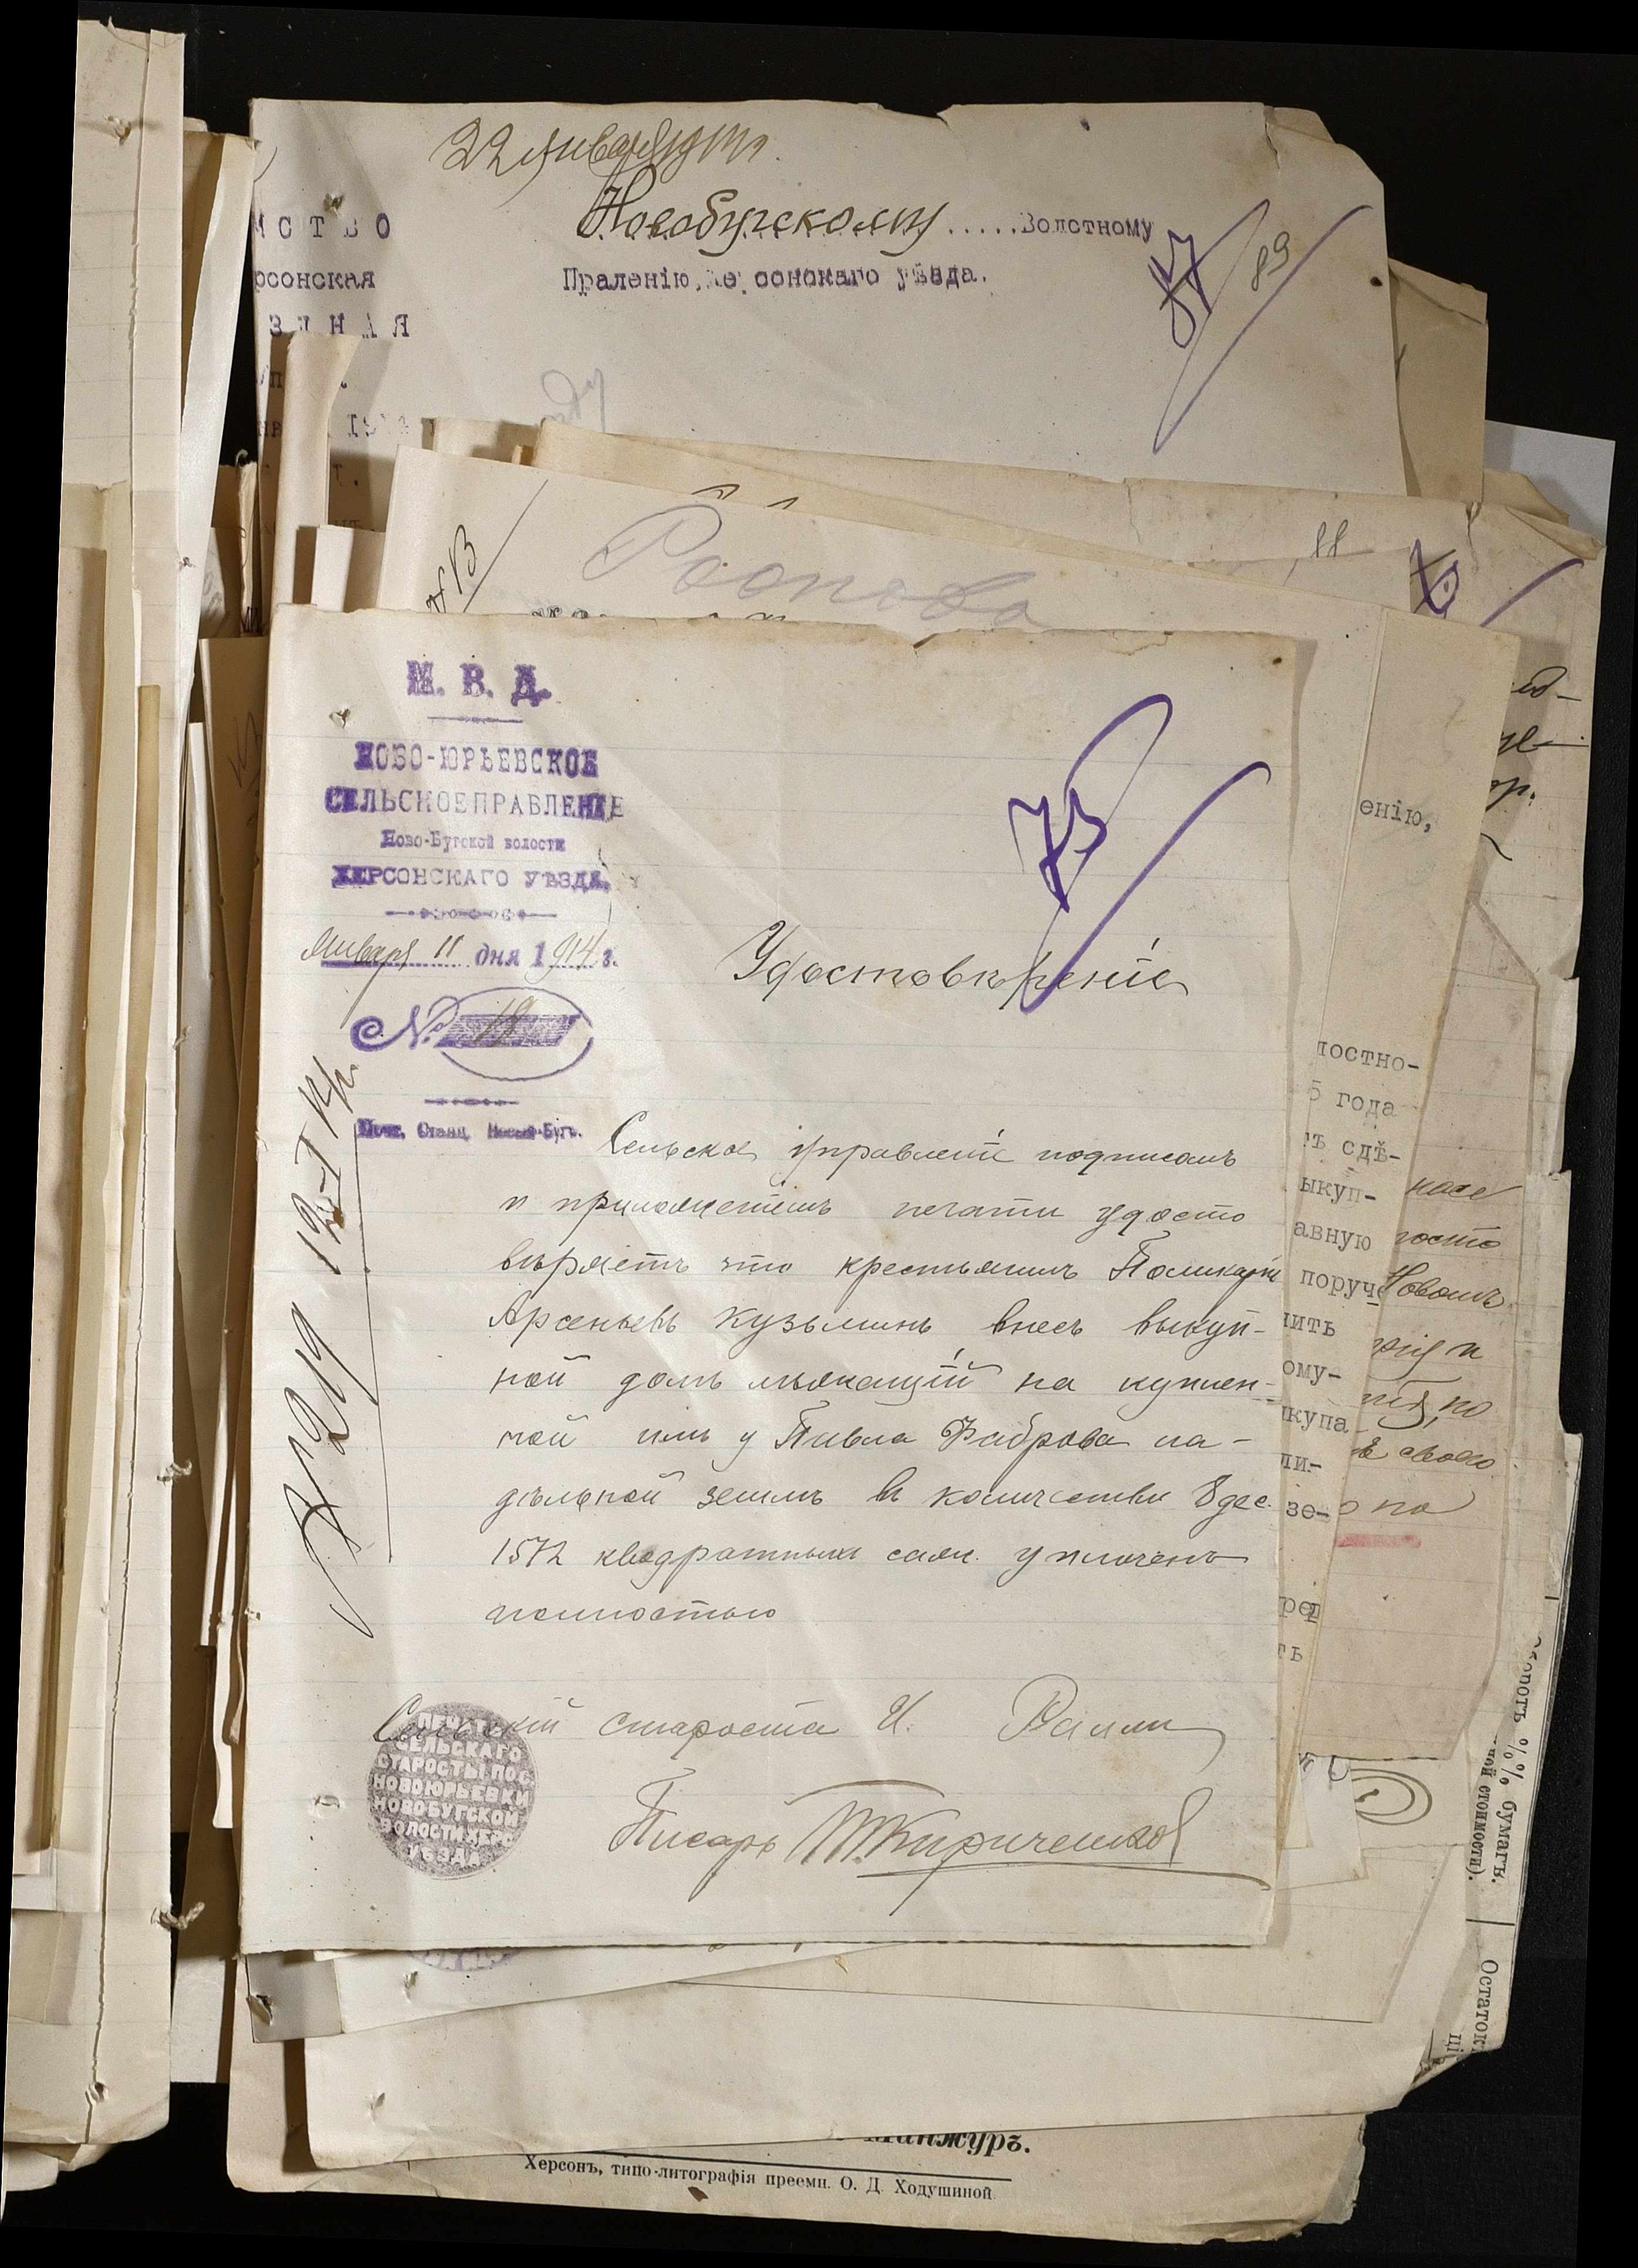 22 января 1914 г.
Новобугскому.....Волостному
Праленію,
уѣзда.
рсонская
87
89
88
М. В. Д.
НОВО-ЮРЬЕВСКОЕ
СЕЛЬСКОЕ ПРАВЛЕНІЕ
Ново-Бугской волости
ХЕРСОНСКАГО УѢЗДА.
Января 11 дня 1914 г.
№ 18
Почт. Станц. Новый-Бугъ.
73
Удостовѣреніе
№ 219 12-I
Сельское управленіе подписомъ
и приложеніемъ печати удосто
вѣряетъ что крестьянинъ Поликарпъ
Арсеньевъ Кузьминъ внесъ выкуп-
ной долгъ лѣжащій на куплен-
ной имъ у Павла Фаброва на-
дѣльной землѣ въ количествѣ 8 дес.
1572 квадратныхъ саж. уплоченъ
полностью
Сельскій староста И. Ралли
Писарь П. Кириченко
ПЕЧАТЬ
СЕЛЬСКАГО
СТАРОСТЫ ПОС.
НОВОЮРЬЕВКИ
НОВОБУГСКОЙ
ВОЛОСТИ ХЕРС.
УѢЗДА
енію,
лостно-
5 года
ть сдѣ-
ыкуп-
авную
поруч
ить
ому-
купа
ли-
зе-
но
своего
по
Оборотъ %% бумагъ.
ной стоимости).
Остатокъ
Манжуръ.
Херсонъ, типо-литографія преемн. О. Д. Ходушиной